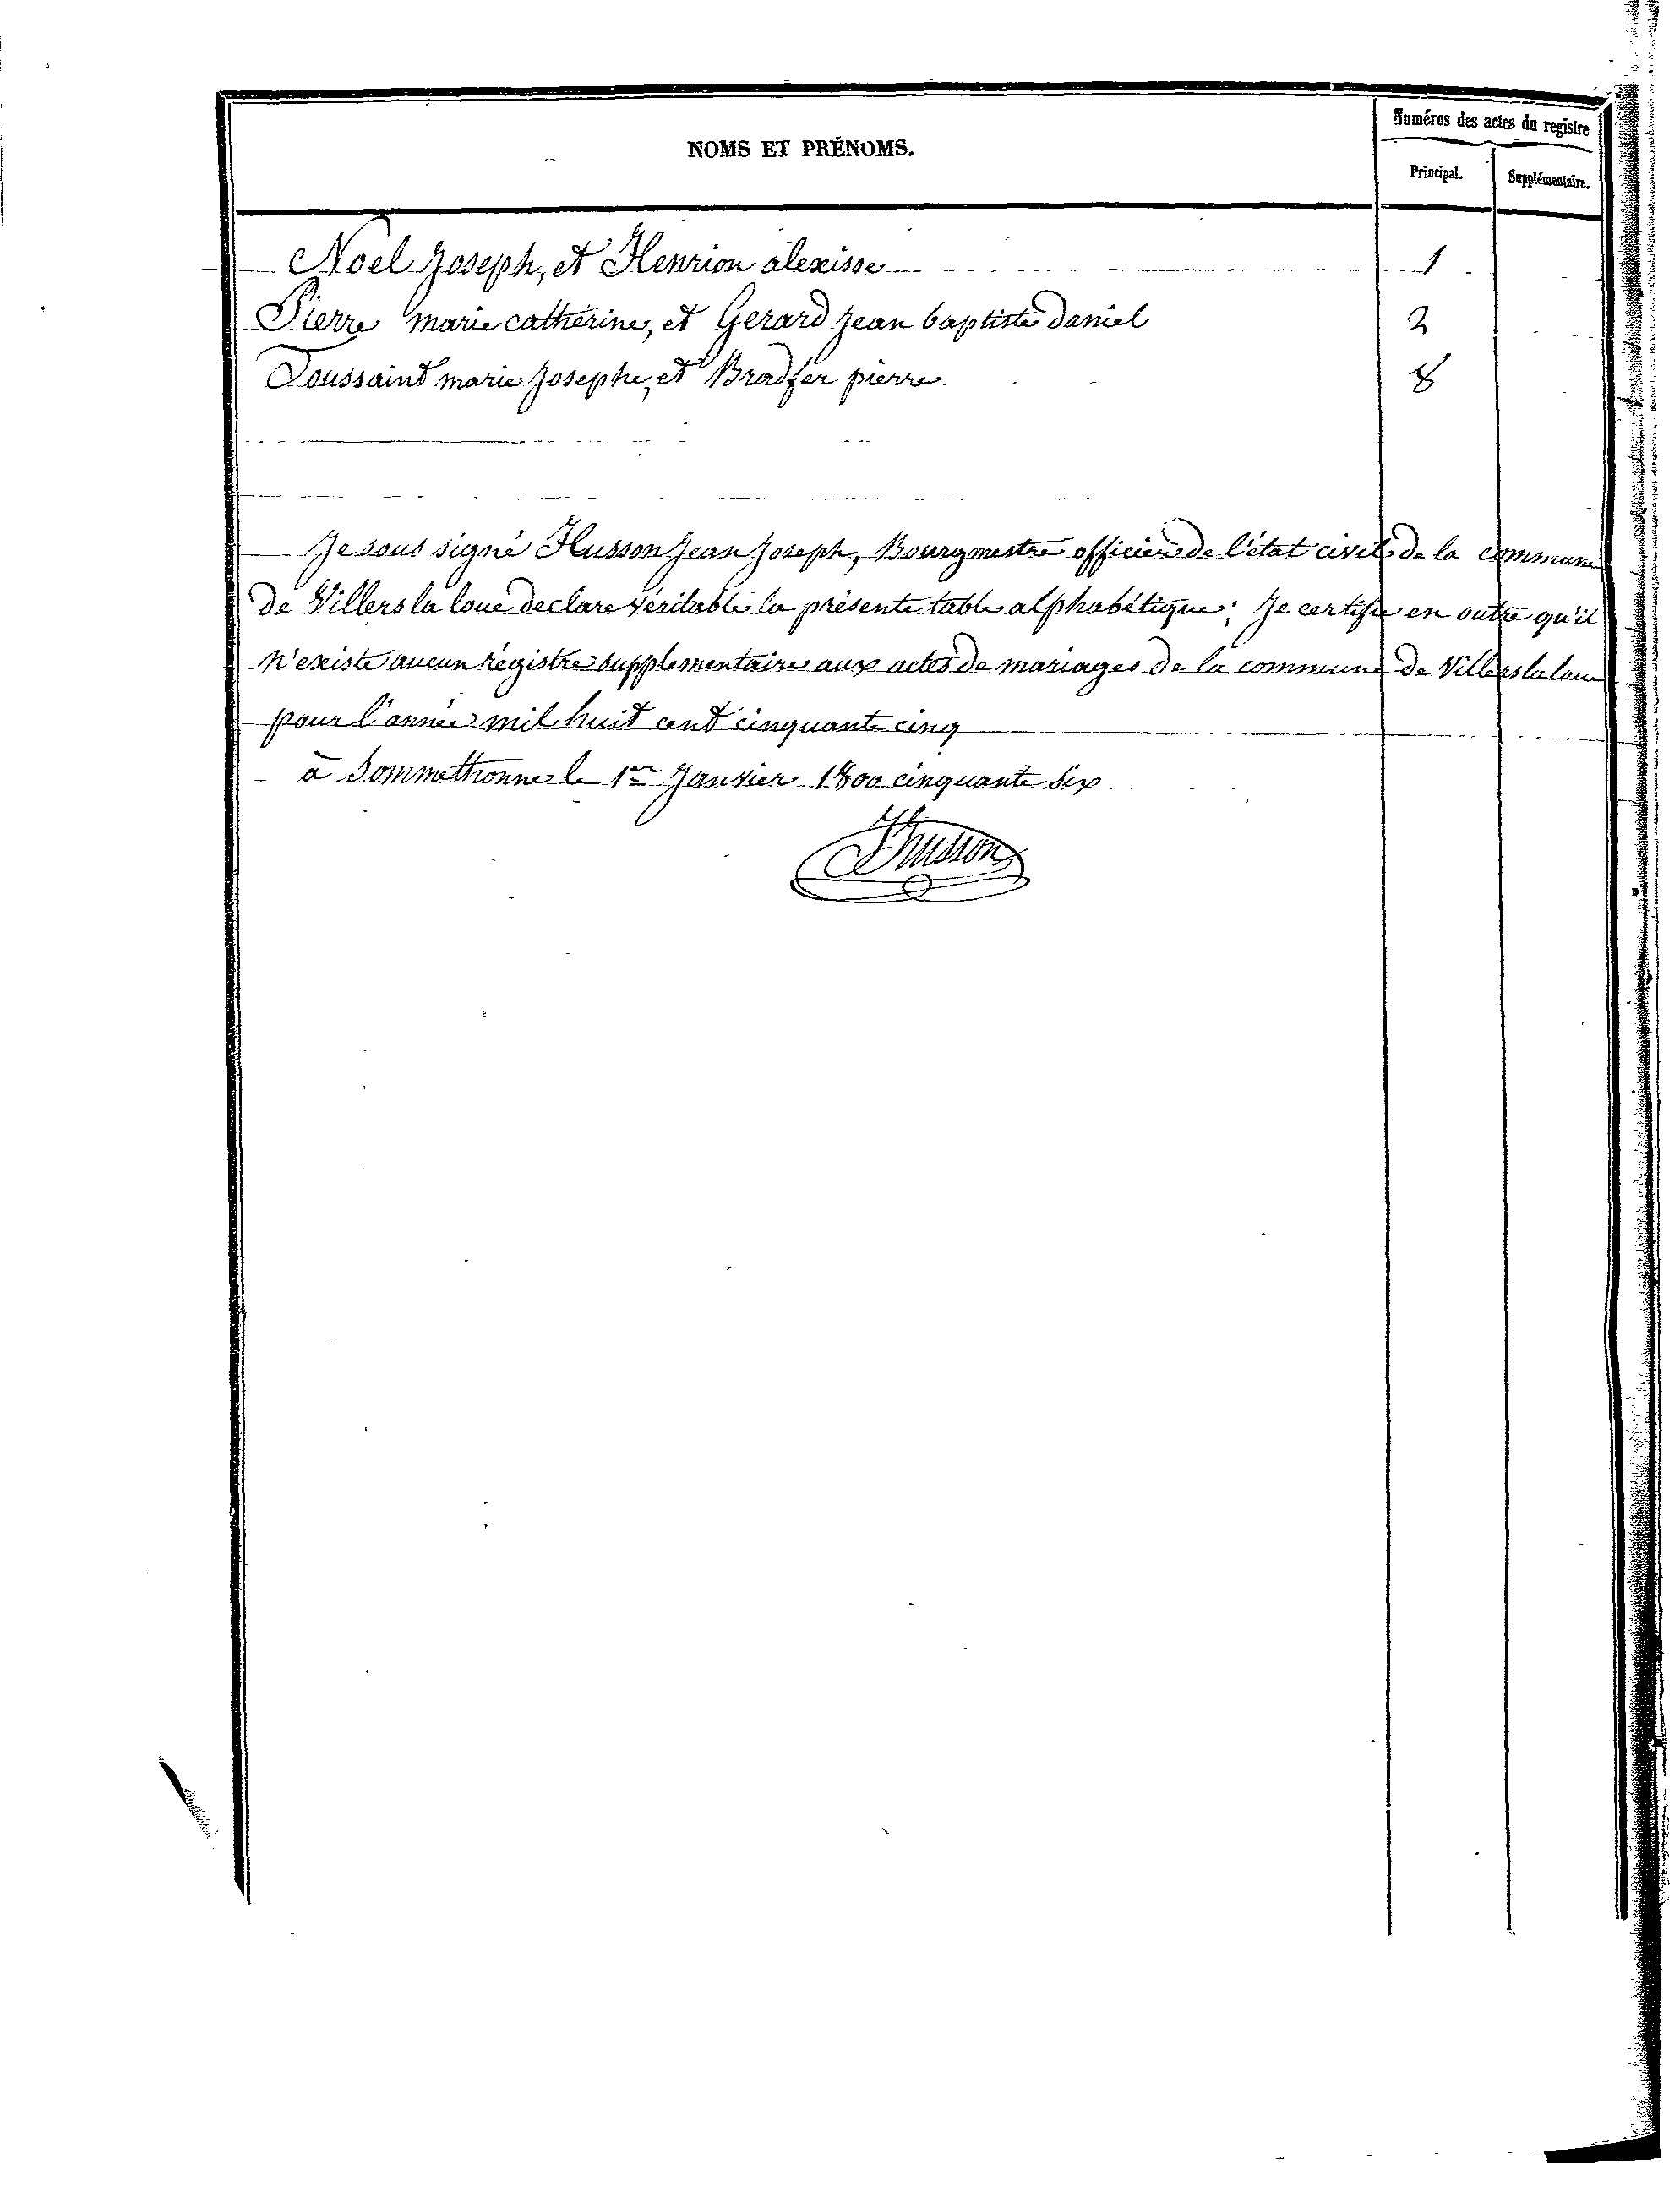 NOMS ET PRÉNOMS.
Numéros des actes du registre
Principal.
Supplémentaire.
Noel Joseph, et Henrion alexisse 1
Pierre marie catherine, et Gerard Jean baptiste daniel 2
Toussaint marie Josephe, et Bradfer pierre. 8
Je sous signé Husson Jean Joseph, Bourgmestre officier de l'état civil de la commune
de Villers la loue declare véritable la présente table alphabétique; Je certifie en outre qu'il
n'existe aucun régistre supplementaire aux actes de mariages de la commune de Villers la loue
pour l'année mil huit cent cinquante cinq
à Sommethonne le 1er Janvier 1800 cinquante six
JJhusson